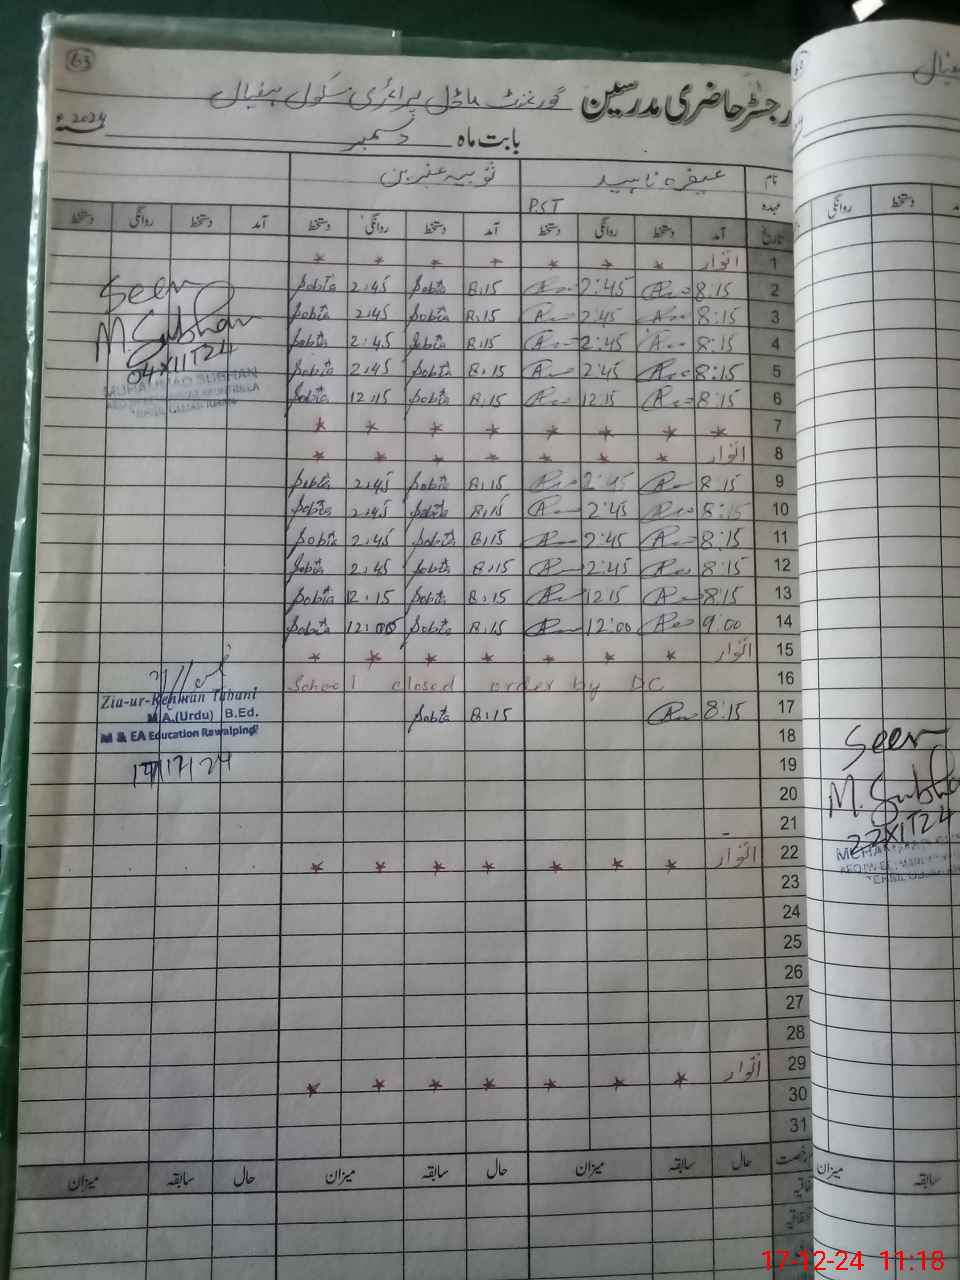 63
رجسٹر حاضری مدرسین گورنمنٹ ماڈل پرائمری سکول ہفیال
بابت ماہ دسمبر 2024ء
نام عیفرہ ناہید ثوبیہ عنبرین
عہدہ P.S.T
تاریخ آمد دستخط روانگی دستخط آمد دستخط روانگی دستخط آمد دستخط روانگی دستخط
1 اتوار * * * * * * *
2 8:15 2:45 8:15 Sobia 2:45 Sobia
3 8:15 2:45 8:15 Sobia 2:45 Sobia
4 8:15 2:45 8:15 Sobia 2:45 Sobia
5 8:15 2:45 8:15 Sobia 2:45 Sobia
6 8:15 12:15 8:15 Sobia 12:15 Sobia
7 * * * * * * * *
8 اتوار * * * * * * *
9 8:15 2:45 8:15 Sobia 2:45 Sobia
10 8:15 2:45 8:15 Sobia 2:45 Sobia
11 8:15 2:45 8:15 Sobia 2:45 Sobia
12 8:15 2:45 8:15 Sobia 2:45 Sobia
13 8:15 12:15 8:15 Sobia 12:15 Sobia
14 9:00 12:00 8:15 Sobia 12:00 Sobia
15 اتوار * * * * * * *
16 School closed order by DC
17 8:15 8:15 Sobia
18
19
20
21
22 اتوار * * * * * * *
23
24
25
26
27
28
29 اتوار * * * * * * *
30
31
رخصت حال سابقہ میزان حال سابقہ میزان حال سابقہ میزان
Seen
M. Subhan
04XIIT24
MUHAMMAD SUBHAN
Zia-ur-Rehman Tahani
M.A.(Urdu) B.Ed.
M & EA Education Rawalpindi
17/12/24
روانگی دستخط
Seen
M. Subhan
22XIT24
میزان سابقہ
17-12-24 11:18